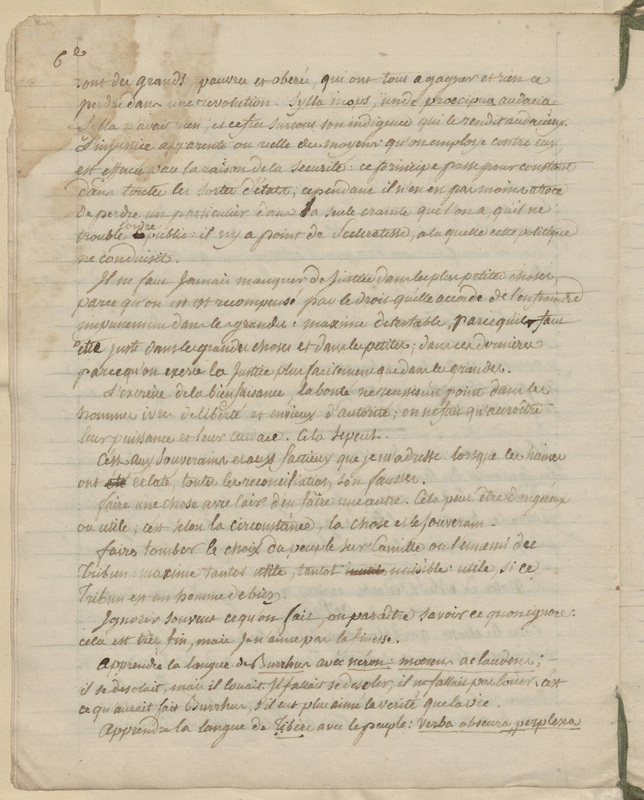 6e
sont des grands, pauvres et obérés, qui ont tout a gagner et rien a
perdre dans une revolution. Sylla inops, unde præcipua audacia
Sylla n'avait rien, et ce fut surtout son indigence qui le rendit audacieux.
L'injustice apparente ou réelle des moyens qu'on employe contre eux,
est effacée par la raison de la securité. ce principe passe pour constant
dans toutes les sortes d'états; cependant il n'en est pas moins atroce
de perdre un particulier dans la seule crainte que l'on a, qu'il ne
trouble l'ordre public: il n'y a point de Scélératesse, a la quelle cette politique
ne conduisit.
Il ne faut Jamais manquer de Justice dans les plus petites choses,
parce qu'on en est recompensé par le droit qu'elle accorde de l'enfreindre
impunement dans les grandes: maxime detestable, parcequ'il faut
être juste dans les grandes choses et dans les petites; dans ces dernieres
parcequ'on exerce la Justice plus facilement que dans les grandes.
L'exercice de la bienfaisance, la bonté ne réussissent point dans les
hommes ivres de liberté et envieux d'autorité; on ne fait qu'accroître
leur puissance et leur audace. Cela se peut.
C'est aux souverains et aux factieux que je m'adresse. lorsque les haines
ont éclaté, toutes les reconciliations sont fausses.
faire une chose avec l'air d'en faire une autre. Cela peut être dangereux
ou utile; c'est selon la circonstance, la chose et le souverain.
faire tomber le choix du peuple sur Camille ou l'ennemi des
Tribuns: maxime tantot utile, tantot nuisible: utile, si ce
Tribun est un homme de bien.
Ignorer souvent ce qu'on sait, ou paraître savoir ce qu'on ignore.
cela est très fin, mais Je n'aime pas la finesse.
apprendre la langue de Burrhus avec néron: mœrens ac laudens;
il se desolait, mais il louait. Il fallait se desoler, il ne fallait pas louer. c'est
ce qu'aurait fait Burrhus, s'il eut plus aimé la verité que la vie.
Apprendre la langue de Tibere avec le peuple: verba obscura, perplexa